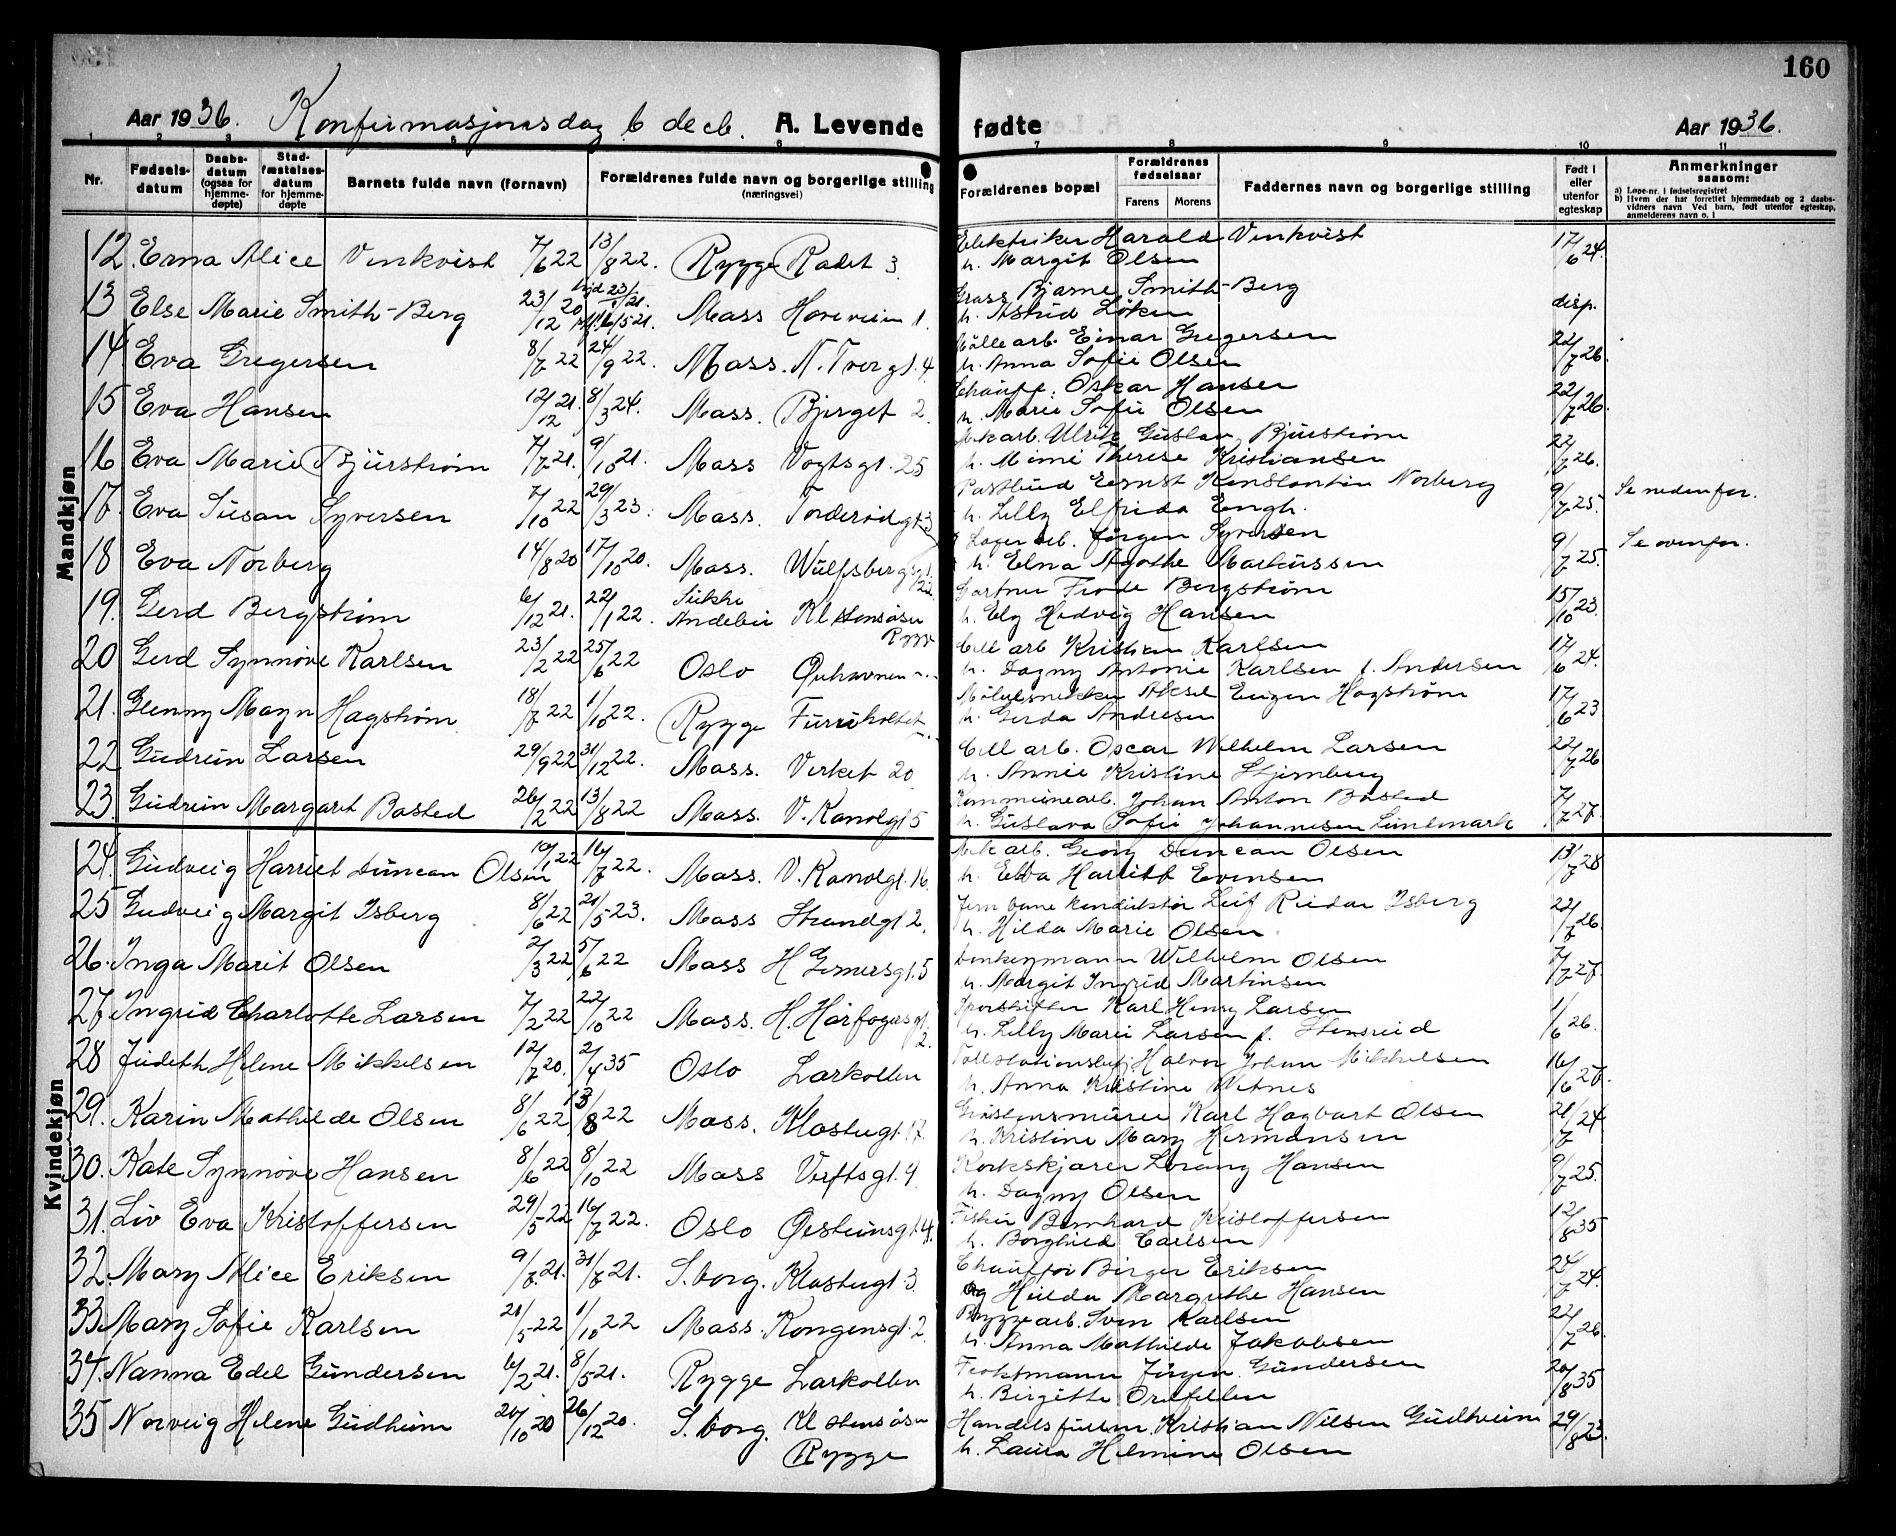 160
Aar 1936. Konfirmasjonsdag 6 decb. A. Levende fødte Aar 1936.
1 2 3 5 6 7 8 9 10 11
Nr.
Fødsels-
datum
Daabs-
datum
(ogsaa for
hjemme-
døpte)
Stad-
fæstelses-
datum
for hjemme-
døpte
Barnets fulde navn (fornavn)
Forældrenes fulde navn og borgerlige stilling
(næringsvei)
Forældrenes bopæl
Forældrenes
fødselsaar
Farens Morens
Faddernes navn og borgerlige stilling
Født i
eller
utenfor
egteskap
Anmerkninger
saasom:
a) Løpe-nr. i fødselsregistret
b) Hvem der har forrettet hjemmedaab og 2 daabs-
vidners navn Ved barn, født utenfor egteskap,
anmelderens navn o. l
Mandkjøn
12. Erna Alice Vinkvist 7/6 22 13/8 22. Rygge Radet 3 Elektriker Harald Vinkvist 17/6 24.
h. Margit Olsen
13 Else Marie Smith-Berg 23/12 20 Mass Horeveien 1. Gross Bjarne Smith-Berg disp.
h. Astrid Løken
14. Eva Gregersen 8/7 22 24/9 22. Mass. N. Tvergt. 4 Møllearb. Einar Gregersen 22/7 26.
h. Anna Sofie Olsen
15 Eva Hansen 12/12 21. 8/3 24. Mass. Bjerget 2. Chauff. Oskar Hansen 22/7 26.
h. Marie Sofie Olsen
16 Eva Marie Bjürstrøm 7/7 21. 9/10 21. Mass Vogtsgt. 25 Mek arb. Ulrik Gustav Bjürstrøm 22/7 26.
h. Mimi Therese Kristiansen
17. Eva Susan Syversen 7/10 22 29/3 23. Mass. Torderødgt 3 Postbud Ernst Konstantin Norberg 9/7 25. Se nedenfor.
h. Lilly Elfrida Engh.
18 Eva Norberg 14/8 20 17/10 20. Mass. Wulfsbergsgt. Lager arb. Jørgen Syversen 9/7 25. Se ovenfor.
h. Elna Agathe Markussen
19. Gerd Bergstrøm 6/12 21. 22/1 22. Andebu Kl stensåsen Rygge Gartner Frode Bergstrøm 15/10 23.
h. Ely Hedvig Hansen
20 Gerd Synnøve Karlsen 23/2 22 25/6 22 Oslo Cell arb Kristian Karlsen 17/6 24.
h. Dagny Antonie Karlsen f. Andersen
21. Glenny Mayn Hagstrøm 18/7 22 1/10 22. Rygge Furuholtet Møbelsnekker Aksel Eugen Hagstrøm 17/6 23
h. Gerda Andresen
22 Gudrun Larsen 29/9 22 31/12 22. Mass. Verket 20 Cell arb. Oscar Wilhelm Larsen 22/7 26
h. Annie Kristine Stjernberg
23. Gudrun Margaret Basted 26/2 22 13/8 22 Mass. V. Kanalgt 5 Kommunearb. Johan Anton Båsted 7/7 27.
h. Gustava Sofie Johannesen Lundmark
Kvindekjøn
24. Gudveig Harriet Duncan Olsen 10/1 22 16/7 22. Mass. V. Kanalgt. 16. Mek arb. Georg Duncan Olsen 13/7 28
h. Ebba Harriet Evensen
25 Gudveig Margit Isberg 8/6 22 21/5 23. Mass Strandgt 2. Jernbane konduktør Leif Reidar Isberg 22/7 26.
h. Hilda Marie Olsen
26. Inga Marit Olsen 2/3 22 5/6 22 Mass H Gernersgt. 5 Donkeymann Wilhelm Olsen 7/7 27.
h. Margit Ingrid Martinsen
27 Ingrid Charlotte Larsen 7/2 22 22/10 22 Mass. H. Hårfagersgt. 2. Sporskifter Karl Henry Larsen 1/6 26.
h. Lilly Marie Larsen f. Stensrud
28 Judith Helene Mikkelsen 12/7 20. 2/4 35 Oslo Larkollen Halvor Johan Mikkelsen 16/6 27.
h. Anna Kristine Witnes
29. Karin Mathilde Olsen 8/6 22 13/8 22 Mass. Klostergt. 17. Karl Hagbart Olsen 21/7 24
h. Kristine Mary Hermansen
30. Kate Synnøve Hansen 8/6 22 8/10 22 Mass Verftsgt. 4 Korkskjærer Lorang Hansen 9/7 25.
h. Dagny Olsen
31. Liv Eva Kristoffersen 29/5 22 16/7 22. Oslo Østeinsgt 4. Fisker Bernhard Kristoffersen 12/8 35
h. Borghild Carlsen
32. Mary Alice Eriksen 9/7 21. 31/7 21. S. borg. Klostergt. 3 Chauffør Birger Eriksen 24/7 24.
og Hilda Margrethe Hansen
33. Mary Sofie Karlsen 21/5 22 1/10 22 Mass. Kongensgt. 2. Bryggearb. Sven Karlsen 22/7 26.
h. Anna Mathilde Jakobsen
34. Nanna Edel Gundersen 6/2 21. 8/5 21. Rygge Larkollen Jørgen Gundersen 20/8 35
h. Birgitte Orefellen
35 Norveig Helene Gudheim 20/10 20 26/12 20. S. borg. Kl stensåsen Rygge Handelsfullm. Kristian Nilsen Gudheim 29/8 23.
h. Laura Helmine Olsen